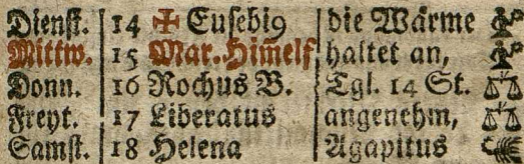 Dienst. 14 ✠ Eusebiꝰ die Wärme
Mittw. 15 Mar. Him̃elf. haltet an,
Donn. 16 Rochus B. Tgl. 14 St.
Freyt. 17 Liberatus angenehm,
Samst. 18 Helena Agapitus